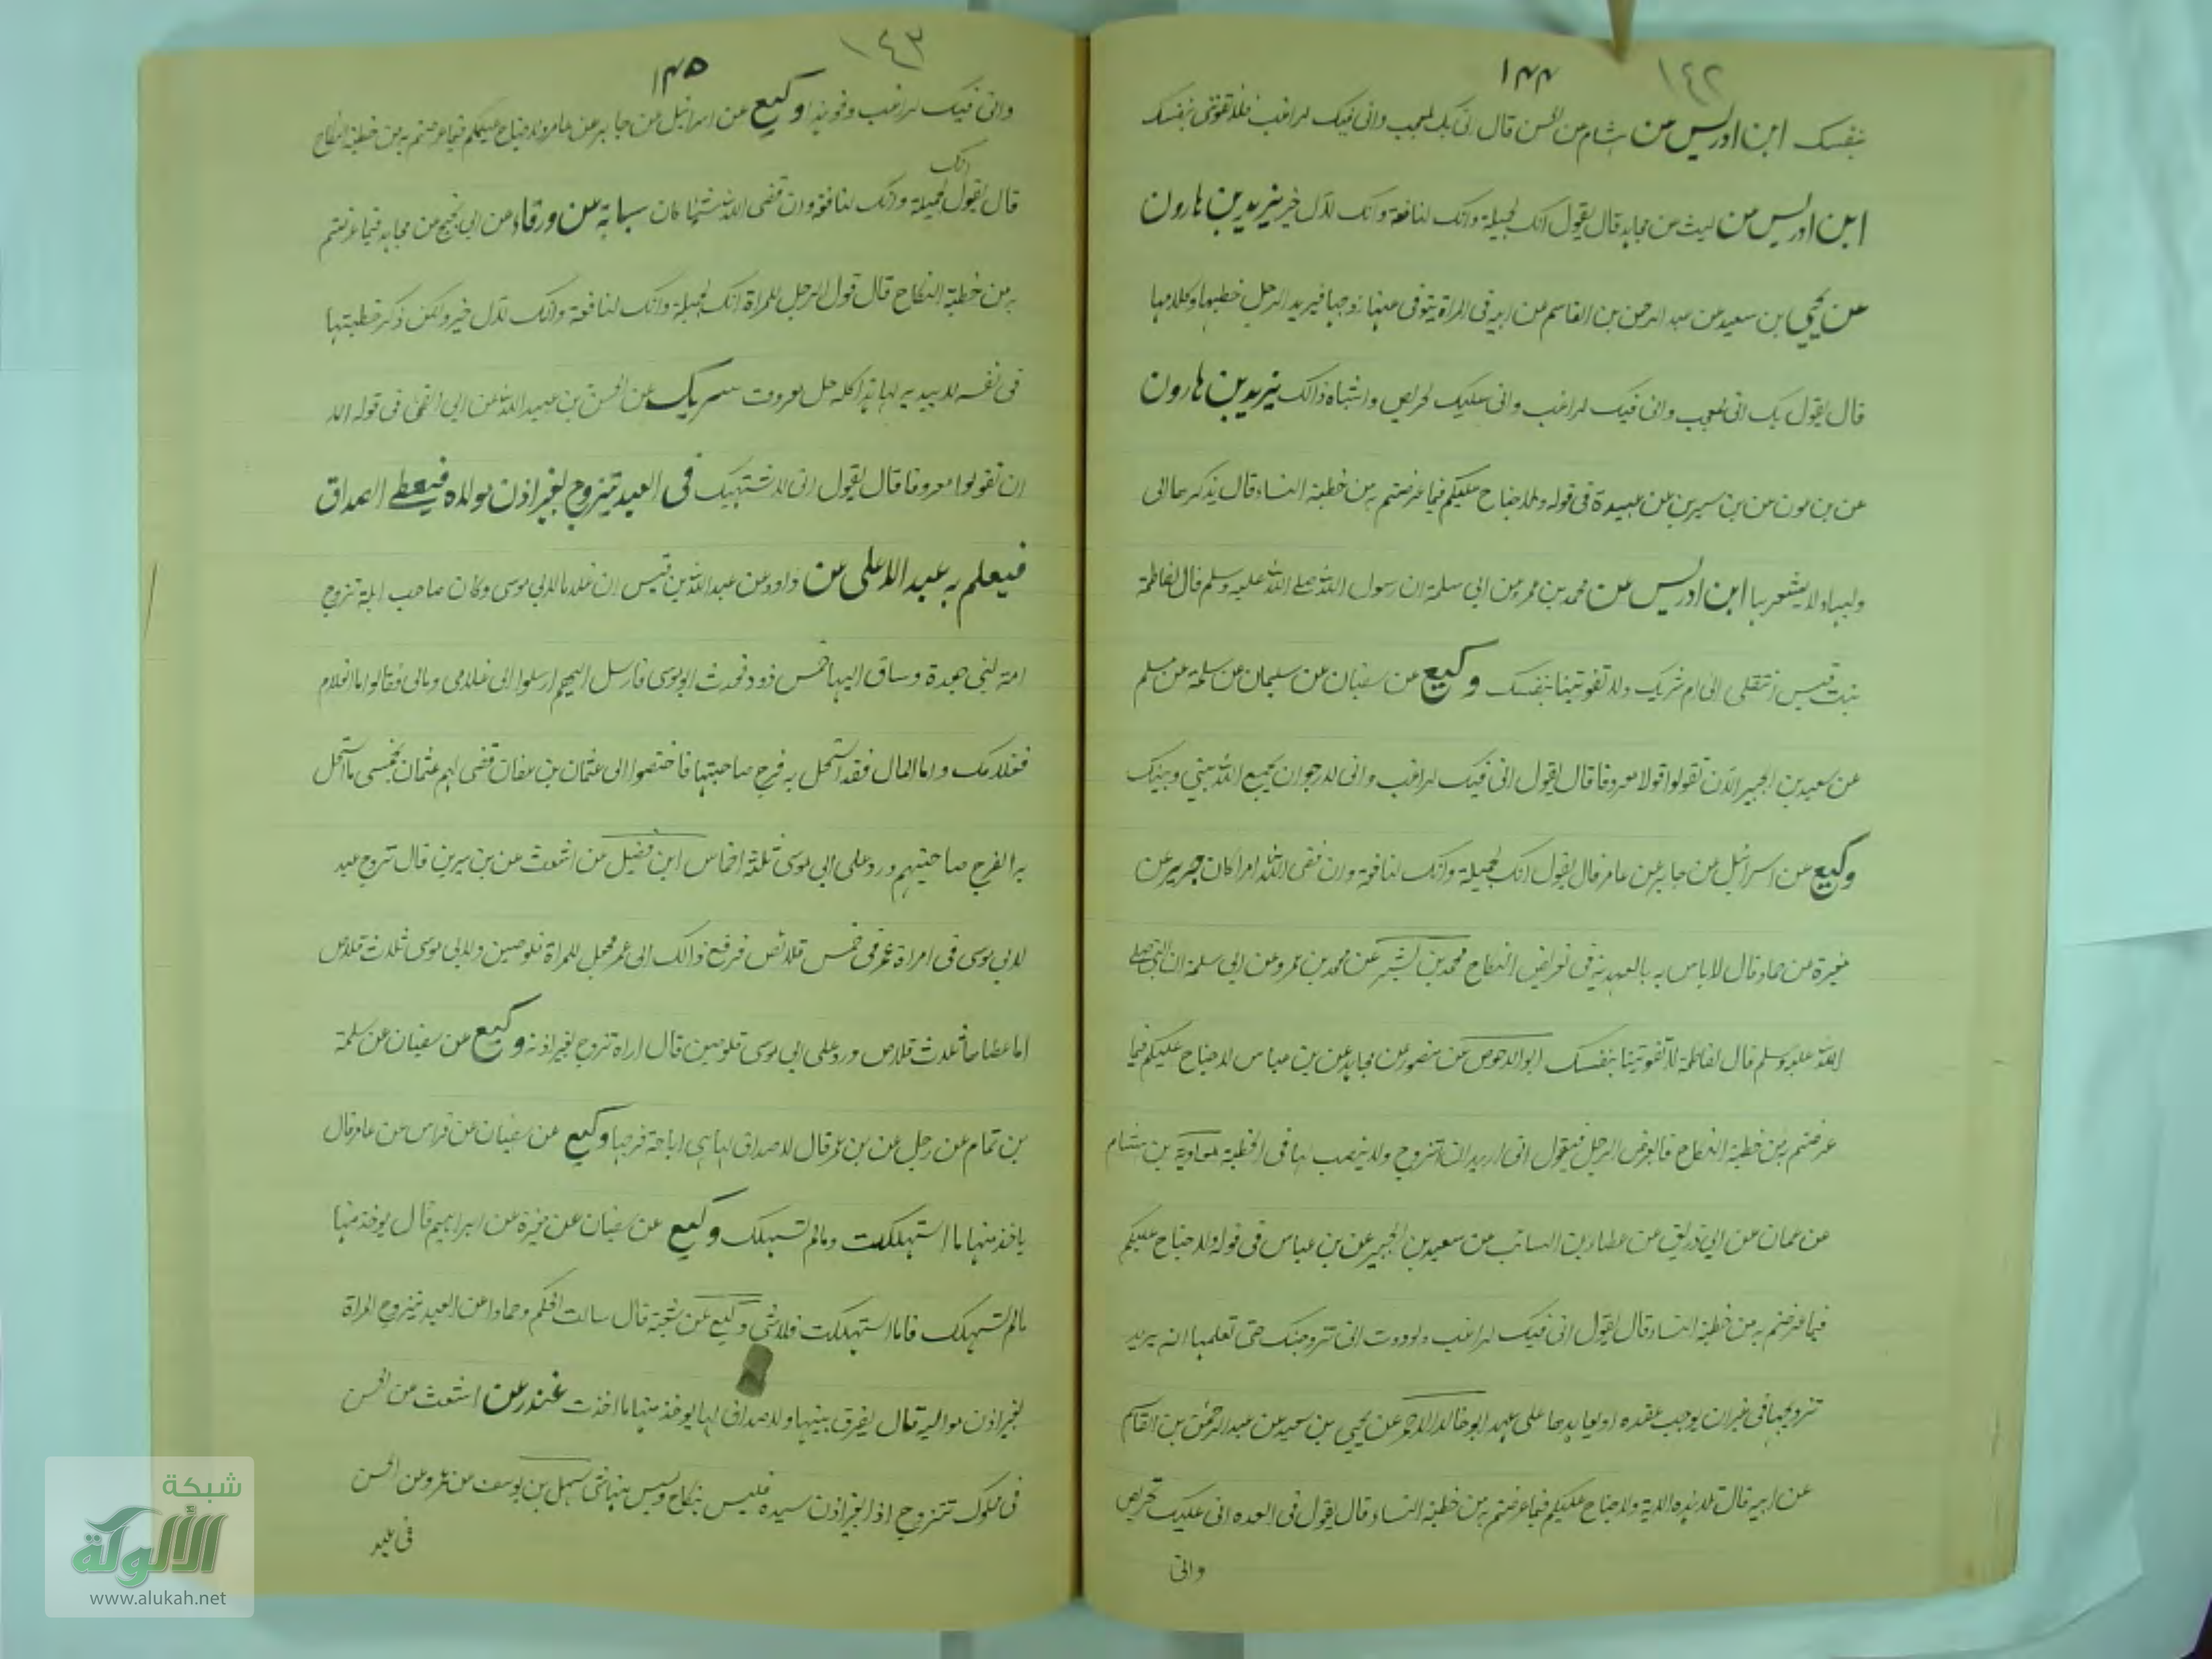 ١٤٢
١٤٤
بنفسك ابن ادريس من هشام من الحسن قال انى بك لمعجب وانى فيك لراغب فلا تفوتنى بنفسك
ابن ادريس من ليث من مجاهد قال يقول انك لجميلة وانك لنافقة وانك لالى خير يزيد بن هارون
عن يحيى بن سعيد عن عبد الرحمن بن القاسم من ابيه فى المراة يتوفى عنها زوجها فيريد الرجل خطبتها وكلامها
قال يقول بك انى لمعجب وانى فيك لراغب وانى عليك لحريص واشباه ذالك يزيد بن هارون
عن بن عون عن بن سيرين عن عبيدة فى قوله ولا جناح عليكم فيما عرضتم به من خطبة النساء قال يذكرها الى
وليها ولا يشعر بها ابن ادريس عن محمد بن عمر من ابى سلمة ان رسول الله صلے الله عليه وسلم قال لفاطمة
بنت قيس انتقلى الى ام شريك ولا تفوتينا بنفسك وكيع عن سفيان عن سليمان عن سلمة عن مسلم
عن سعيد بن الجبير الا ان تقولوا قولا معروفا قال يقول انى فيك لراغب وانى لارجوا ان يجمع الله بينى وبينك
وكيع عن اسرائيل عن جابر عن عامر قال يقول انك لجميلة وانك لنافقة وان قضى الله امرا كان جرير عن
مغيرة عن حماد قال لا باس به بالهدية فى تعريض النكاح محمد بن بشر عن محمد بن عمرو عن ابى سلمة ان النبى صلے
الله عليه وسلم قال لفاطمة لا تفوتينا بنفسك ابو الاحوص عن منصور عن مجاهد عن بن عباس لا جناح عليكم فيما
عرضتم به من خطبة النكاح قال يعرض الرجل فيقول انى اريد ان اتزوج ولا ينصب لها فى الخطبة معاوية بن هشام
عن عمار عن ابى زريق عن عطاء بن السائب من سعيد بن الجبير عن بن عباس فى قوله ولا جناح عليكم
فيما عرضتم به من خطبة النساء قال يقول انى فيك لراغب ولوددت انى تزوجتك حتى تعلمها انه يريد
تزويجها فى غير ان يوجب عقده او يعاهدها على عهد ابو خالد الاحمر عن يحيى بن سعيد عن عبد الرحمن بن القاسم
عن ابيه قالت لا هذه الاية ولا جناح عليكم فيما عرضتم به من خطبة النساء قال يقول فى العده انى عليك لحريص
وانى
١٤٣
١٤٥
وانى فيك لراغب ونحو هذا وكيع عن اسرائيل عن جابر عن عامر ولا جناح عليكم فيما عرضتم به من خطبة النكاح
قال يقول انك لجميلة وانك لنافقة وان قضى الله شيئا كان سبابة من ورقاء من ابى نجيح من مجاهد فيما عرضتم
به من خطبة النكاح قال قول الرجل للمراة انك لجميلة وانك لنافقة وانك لالى خير ولكن ذكر خطبتها
فى نفسه لا يبديه لها هذا كله حل معروف سريك عن الحسن بن عبيد الله عن ابى الضحى فى قوله الا
ان تقولوا معروفا قال يقول انى لاشتهيك فى العبد يتزوج بغير اذن مولاه فيعطے الصداق
فيعلم به عبد الاعلى عن داود عن عبد الله بن قيس ان غلاما لابى موسى وكان صاحب ابله تزوج
امة لبنى جعدة وساق اليها خمس ذود فحدث ابو موسى فارسل اليهم ارسلوا الى غلامى ومالى فقالوا اما الغلام
فغلامك واما المال فقد استحل به فرج صاحبتها فاختصموا الى عثمان بن عفان قضى لهم عثمان بخمسى ما استحل
به الفرج صاحبتهم ورد على ابى موسى ثلثة اخماس ابن فضيل من اشعث عن بن سيرين قال تزوج عبد
لابى موسى فى امراة عمر فى خمس قلائص فرفع ذالك الى عمر فجعل للمراة قلوصين ولابى موسى ثلاث قلاص
اما عطاها ثلاث قلاص ورد على ابى موسى قلوصين قال اراه تزوج بغير اذنه وكيع عن سفيان عن سلمة
بن تمام عن رجل عن بن عمر قال لا صداق لها هى اباحة فرجها وكيع عن سفيان عن فراس عن عامر قال
ياخذ منها ما استهلكت ومالم تستهلك وكيع عن سفيان عن مغيرة عن ابراهيم قال يوخذ منها
مالم تستهلك فاما استهلكت فلا شئ وكيع عن شعبة قال سالت الحكم وحمادا عن العبد يتزوج المراة
بغير اذن مواليه قال يفرق بينها ولا صداق لها يوخذ منها ما اخذت غندر عن اشعث من الحسن
فى مملوك تتزوج اذا بغير اذن سيده فليس بنكاح وليس بنها شئ سهل بن يوسف من عمرو من الحسن
شبكة
الألوكة
www.alukah.net